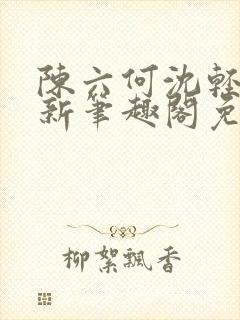 陳六何沈輕
新筆趣閣免
柳絮飄香